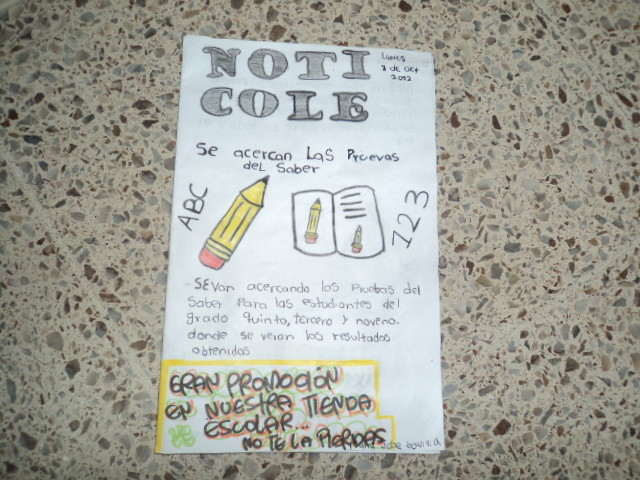 NOTI
COLE
LUNES
1 de Oct
2012
Se acercan Las Pruevas
deL Saber
ABC
123
SeVan acercando las Pruebas del
Saber Para las estudiantes del
grado quinto, tercero y noveno.
donde se veran los resultados
obtenidos
GRAN PROMOCIÓN
EN NUESTRA TIENDA
ESCOLAR...
NO TE LA PIERDAS